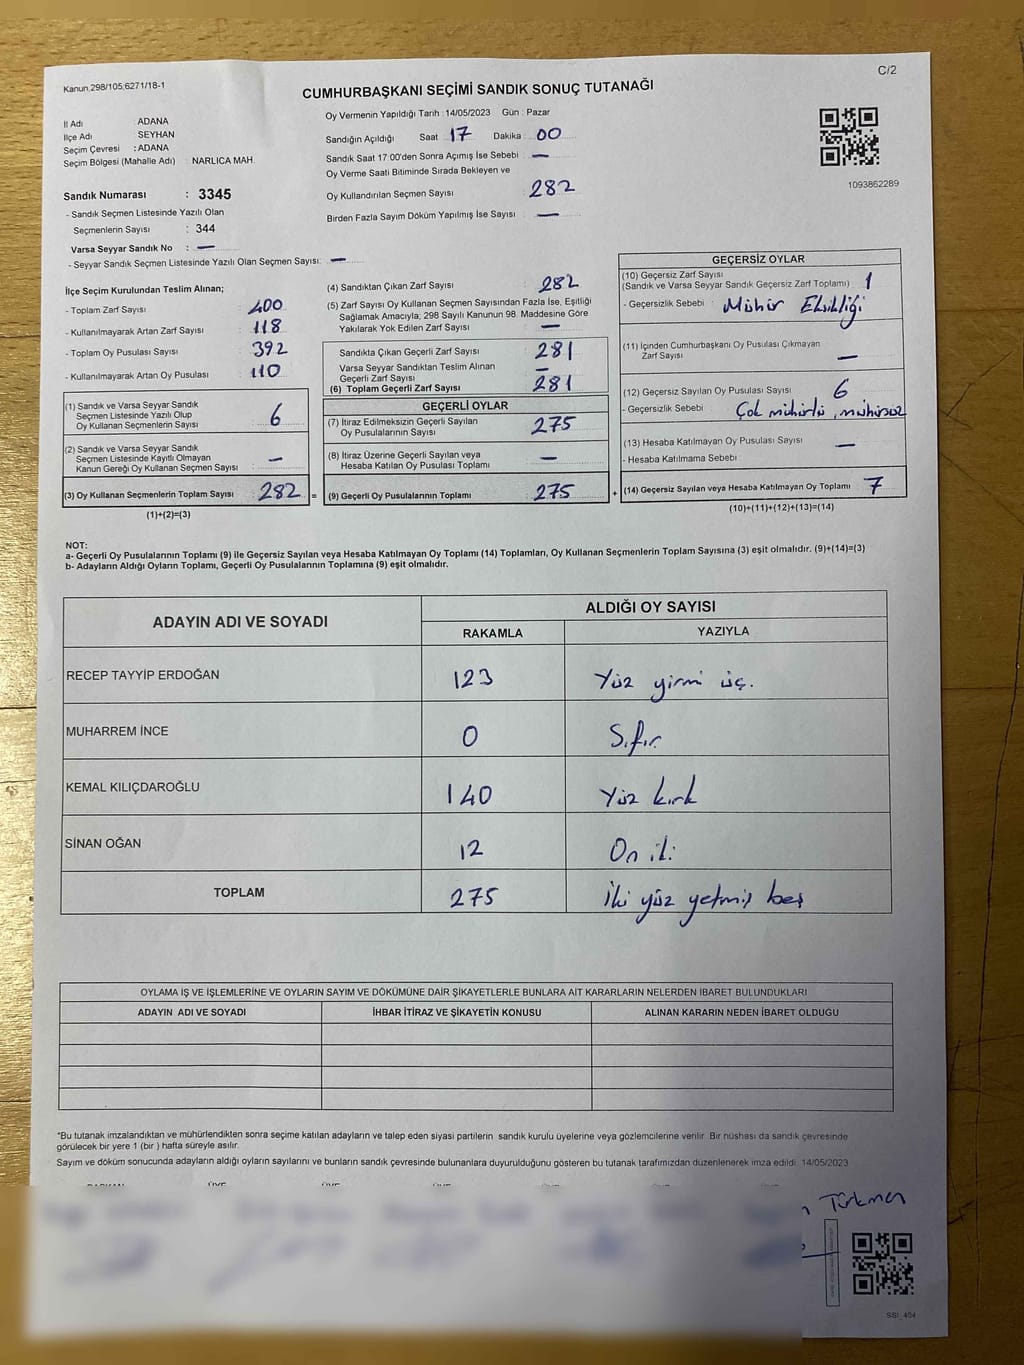 Kanun.298/105;6271/18-1
C/2
CUMHURBAŞKANI SEÇİMİ SANDIK SONUÇ TUTANAĞI
İl Adı : ADANA
İlçe Adı : SEYHAN
Seçim Çevresi : ADANA
Seçim Bölgesi (Mahalle Adı) : NARLICA MAH.
Sandık Numarası : 3345
- Sandık Seçmen Listesinde Yazılı Olan
Seçmenlerin Sayısı : 344
Varsa Seyyar Sandık No : —
- Seyyar Sandık Seçmen Listesinde Yazılı Olan Seçmen Sayısı: —
Oy Vermenin Yapıldığı Tarih : 14/05/2023 Gün : Pazar
Sandığın Açıldığı Saat 17 Dakika : 00
Sandık Saat 17:00'den Sonra Açımış İse Sebebi : —
Oy Verme Saati Bitiminde Sırada Bekleyen ve
Oy Kullandırılan Seçmen Sayısı : 282
Birden Fazla Sayım Döküm Yapılmış İse Sayısı : —
1093862289
İlçe Seçim Kurulundan Teslim Alınan;
- Toplam Zarf Sayısı : 400
- Kullanılmayarak Artan Zarf Sayısı : 118
- Toplam Oy Pusulası Sayısı : 392
- Kullanılmayarak Artan Oy Pusulası : 110
(1) Sandık ve Varsa Seyyar Sandık
Seçmen Listesinde Yazılı Olup
Oy Kullanan Seçmenlerin Sayısı : 6
(2) Sandık ve Varsa Seyyar Sandık
Seçmen Listesinde Kayıtlı Olmayan
Kanun Gereği Oy Kullanan Seçmen Sayısı : —
(3) Oy Kullanan Seçmenlerin Toplam Sayısı : 282 =
(1)+(2)=(3)
(4) Sandıktan Çıkan Zarf Sayısı : 282
(5) Zarf Sayısı Oy Kullanan Seçmen Sayısından Fazla İse, Eşitliği
Sağlamak Amacıyla, 298 Sayılı Kanunun 98. Maddesine Göre
Yakılarak Yok Edilen Zarf Sayısı : —
Sandıkta Çıkan Geçerli Zarf Sayısı : 281
Varsa Seyyar Sandıktan Teslim Alınan
Geçerli Zarf Sayısı : —
(6) Toplam Geçerli Zarf Sayısı : 281
GEÇERLİ OYLAR
(7) İtiraz Edilmeksizin Geçerli Sayılan
Oy Pusulalarının Sayısı : 275
(8) İtiraz Üzerine Geçerli Sayılan veya
Hesaba Katılan Oy Pusulası Toplamı : —
(9) Geçerli Oy Pusulalarının Toplamı : 275 +
GEÇERSİZ OYLAR
(10) Geçersiz Zarf Sayısı
(Sandık ve Varsa Seyyar Sandık Geçersiz Zarf Toplamı) : 1
- Geçersizlik Sebebi : Mühür Eksikliği
(11) İçinden Cumhurbaşkanı Oy Pusulası Çıkmayan
Zarf Sayısı : —
(12) Geçersiz Sayılan Oy Pusulası Sayısı : 6
- Geçersizlik Sebebi : Çok mühürlü, mühürsüz
(13) Hesaba Katılmayan Oy Pusulası Sayısı : —
- Hesaba Katılmama Sebebi :
(14) Geçersiz Sayılan veya Hesaba Katılmayan Oy Toplamı : 7
(10)+(11)+(12)+(13)=(14)
NOT:
a- Geçerli Oy Pusulalarının Toplamı (9) ile Geçersiz Sayılan veya Hesaba Katılmayan Oy Toplamı (14) Toplamları, Oy Kullanan Seçmenlerin Toplam Sayısına (3) eşit olmalıdır. (9)+(14)=(3)
b- Adayların Aldığı Oyların Toplamı, Geçerli Oy Pusulalarının Toplamına (9) eşit olmalıdır.
ADAYIN ADI VE SOYADI ALDIĞI OY SAYISI
RAKAMLA YAZIYLA
RECEP TAYYİP ERDOĞAN 123 Yüz yirmi üç.
MUHARREM İNCE 0 Sıfır
KEMAL KILIÇDAROĞLU 140 Yüz kırk
SİNAN OĞAN 12 On iki
TOPLAM 275 İki yüz yetmiş beş
OYLAMA İŞ VE İŞLEMLERİNE VE OYLARIN SAYIM VE DÖKÜMÜNE DAİR ŞİKAYETLERLE BUNLARA AİT KARARLARIN NELERDEN İBARET BULUNDUKLARI
ADAYIN ADI VE SOYADI İHBAR İTİRAZ VE ŞİKAYETİN KONUSU ALINAN KARARIN NEDEN İBARET OLDUĞU
*Bu tutanak imzalandıktan ve mühürlendikten sonra seçime katılan adayların ve talep eden siyasi partilerin sandık kurulu üyelerine veya gözlemcilerine verilir. Bir nüshası da sandık çevresinde
görülecek bir yere 1 (bir) hafta süreyle asılır.
Sayım ve döküm sonucunda adayların aldığı oyların sayılarını ve bunların sandık çevresinde bulunanlara duyurulduğunu gösteren bu tutanak tarafımızdan düzenlenerek imza edildi. 14/05/2023
Türkmen
SSI_404